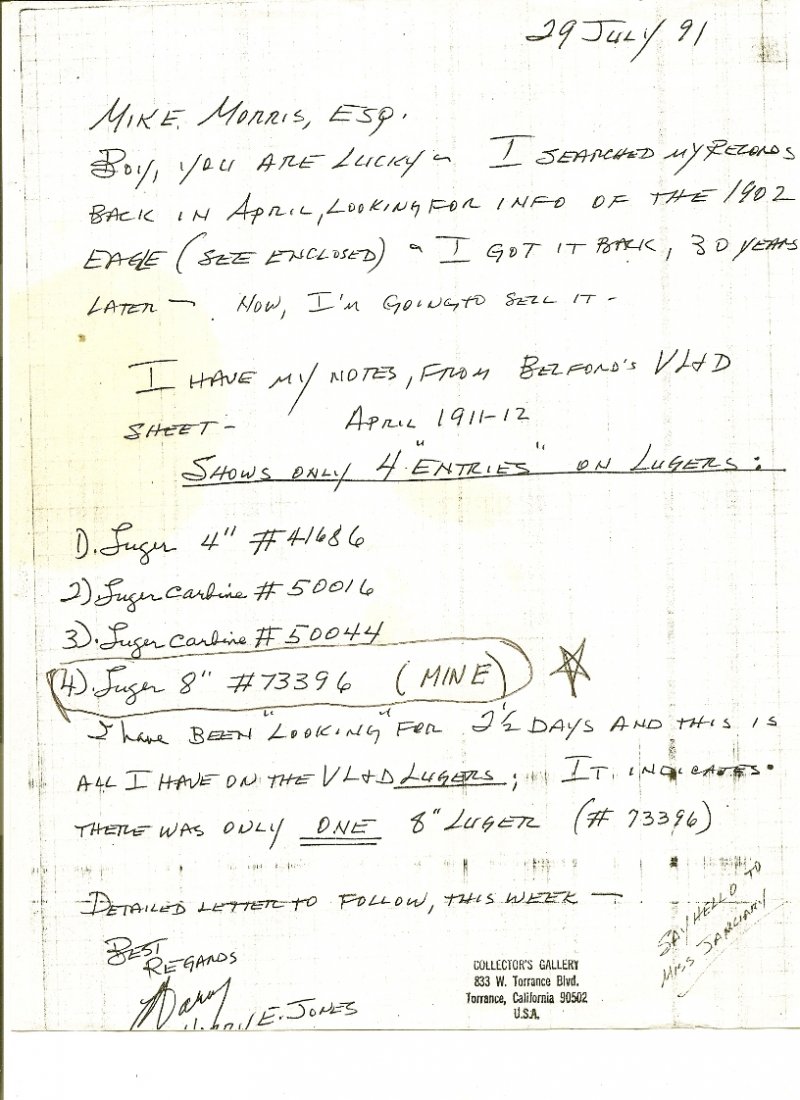 29 JULY 91
MIKE MORRIS, ESQ.
BOY, YOU ARE LUCKY - I SEARCHED MY RECORDS
BACK IN APRIL, LOOKING FOR INFO OF THE 1902
EAGLE (SEE ENCLOSED) - I GOT IT BACK, 30 YEARS
LATER - NOW, I'M GOING TO SELL IT -
I HAVE MY NOTES, FROM BELFORD'S VL&D
SHEET - APRIL 1911-12
SHOWS ONLY 4 "ENTRIES" ON LUGERS:
1). Luger 4" #41686
2). Luger Carbine #50016
3). Luger Carbine #50044
4). Luger 8" #73396 (MINE)
I have BEEN "LOOKING" FOR 2½ DAYS AND THIS IS
ALL I HAVE ON THE VL&D LUGERS; IT INDICATES
THERE WAS ONLY ONE 8" LUGER (# 73396)
DETAILED LETTER TO FOLLOW, THIS WEEK -
SAY HELLO TO
BEST
REGARDS
E. JONES
COLLECTOR'S GALLERY
833 W. Torrance Blvd.
Torrance, California 90502
U.S.A.